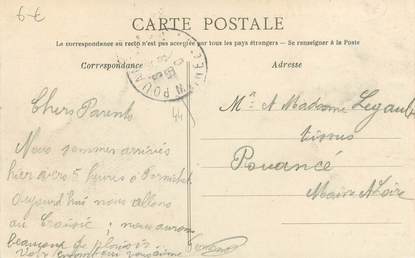 6€
CARTE POSTALE
La correspondance au recto n'est pas acceptée par tous les pays étrangers — Se renseigner à la Poste
Correspondance
Adresse
POUANCÉ
44
Chers Parents
Nous sommes arrivés
hier vers 5 heures à
aujourd'hui nous allons
au Croisic ; nous aurons
beaucoup de plaisir
Mr et Madame Legault
tissus
Pouancé
Maine & Loire